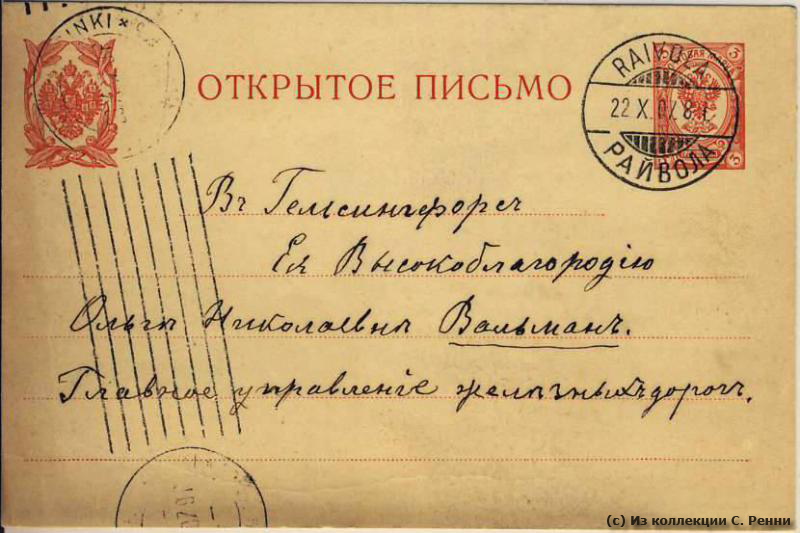 ОТКРЫТОЕ ПИСЬМО
RAIVOLA
22 X 07. 8 I.
РАЙВОЛА
Въ Гельсингфорсъ
Ея Высокоблагородію
Ольгѣ Николаевнѣ Вальманъ.
Главное управленіе желѣзныхъ дорогъ.
(c) Из коллекции С. Ренни